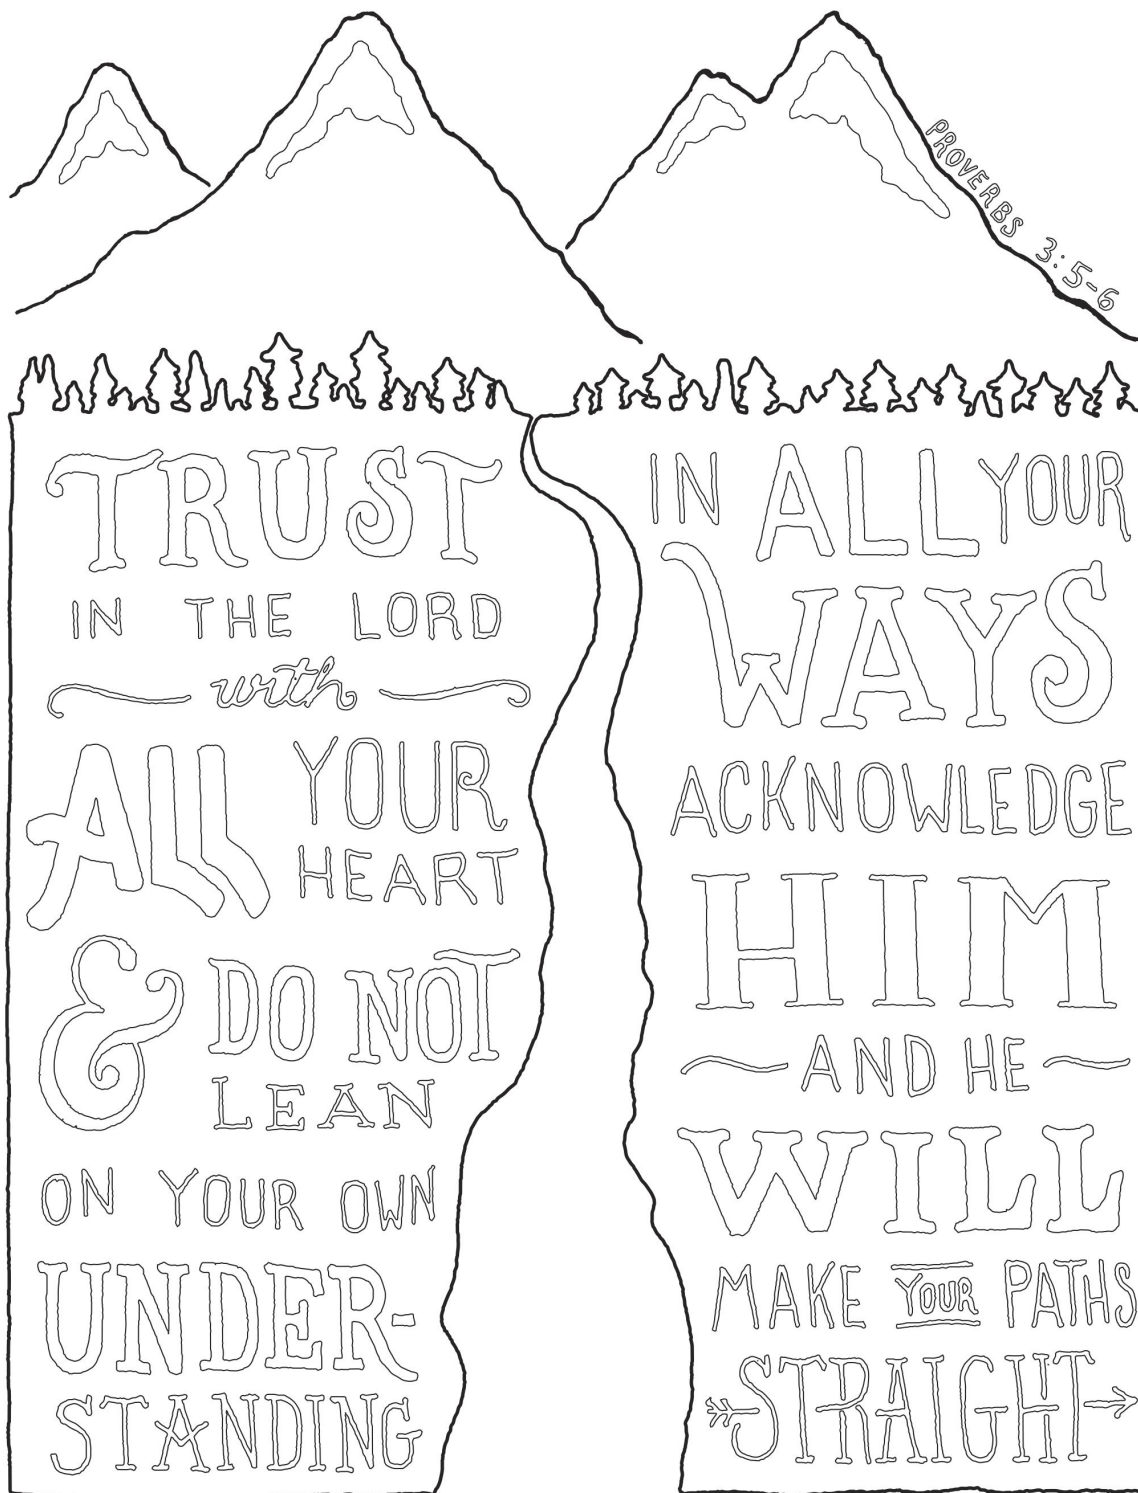 PROVERBS 3:5-6
TRUST
IN THE LORD
with
ALL YOUR
HEART
& DO NOT
LEAN
ON YOUR OWN
UNDER-
STANDING
IN ALL YOUR
WAYS
ACKNOWLEDGE
HIM
AND HE
WILL
MAKE YOUR PATHS
STRAIGHT